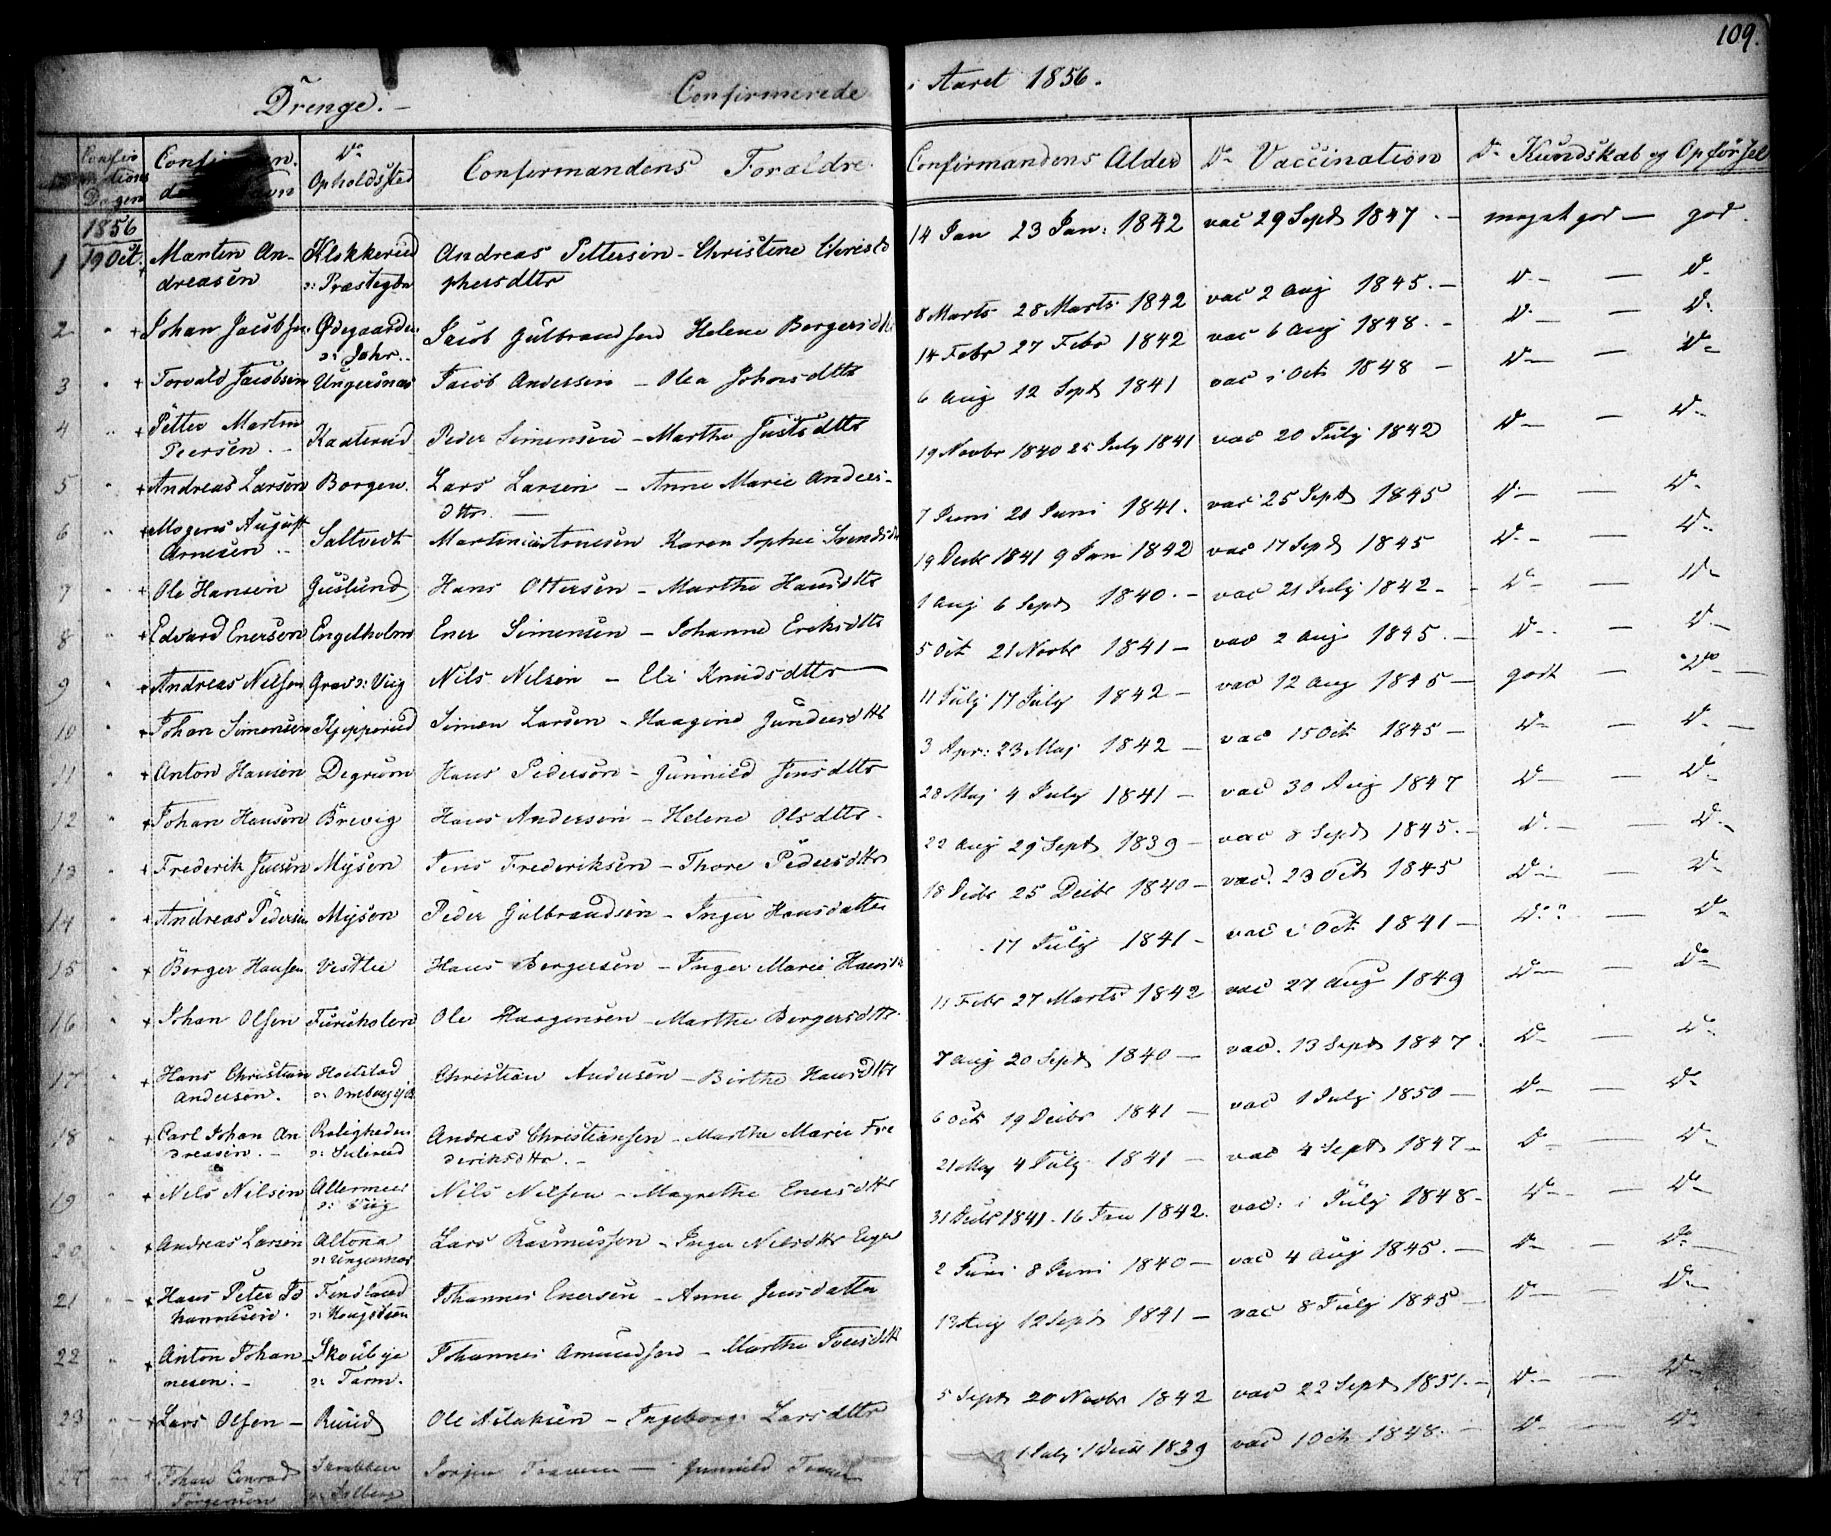 109.
Drenge. — Confirmerede i Aaret 1856.
Dagen
Do Opholdssted
Confirmandens Forældre
Confirmandens Alder
Do Vaccination
Do Kundskab og Opførsel
1856
1 19 Oct. + Morten An- Klokkerud Andreas Pettersen - Christine Christo 14 Jan 23 Jan: 1842 vac 29 Sept 1847. — meget god — god.
dreasen ɔ: Præstegbn phersdttr
2 " + Johan Jacobsen Ødegaarden Jacob Gulbrandsen Helene Borgersdttr 8 Marts 28 Marts 1842 vac 2 Aug 1845. — Do — Do
ɔ: Johr..
3 " + Torvald Jacobsen Ungersnæs Jacob Andersen - Olea Johnsdttr 14 Febr 27 Febr 1842 vac 6 Aug 1848. - Do — Do
4 " + Petter Martin Kaaterud Peder Simensen - Marthe Justsdttr 6 Aug 12 Sept 1841 vac i Oct 1848 — Do — Do
Peersen. -
5 " + Andreas Larsen Borgen. Lars Larsen - Anne Marie Anders- 19 Novbr 1840 25 July 1841 vac 20 July 1842 Do — Do
dttr. —
6 " + Mogens August Saltvedt Arnesen Karen Sophie Svendsdtr 7 Juni 20 Juni 1841. vac 25 Sept 1845 Do — Do
Arnesen ..
7 " + Ole Hansen Guslund Hans Ottersen - Marthe Hansdttr 19 Decbr 1841 9 Jan 1842 vac 17 Sept 1845 Do — Do
8 " + Edvard Enersen Engelholm Ener Simensen - Johanne Eriksdttr 1 Aug 6 Sept 1840. - vac 21 July 1842. - Do — Do
9 " + Andreas Nelsen Grav ɔ: Viig Nils Nilsen - Eli Knudsdttr — 5 Oct 21 Novbr 1841 — vac 2 Aug 1845. — Do — Do
10 " + Johan Simensen Kjepperud Simen Larsen - Haagine Gundersdttr 11 July 17 July 1842 — vac 12 Aug 1845 — godt — Do —
11 " + Anton Hansen Degrum Hans Pedersen - Gunnild Jensdttr 3 Apr: 23 Maj 1842 — vac 15 Oct 1845 — Do — Do —
12 " + Johan Hansen Brevig Hans Andersen - Helene Olsdttr. 28 Maj 4 July 1841 — vac 30 Aug 1847 Do — Do
13 " + Frederik Jensen Mysen Jens Frederiksen - Thore Pedersdttr 22 Aug 29 Sept 1839 — vac 8 Sept 1845. — Do — Do
14 " + Andreas Pedersen Mysen Peder Gulbrandsen - Inger Hansdatter 18 Decbr 25 Decbr 1840 — vac. 23 Oct 1845 Do — Do
15 " + Borger Hansen Vestlie Hans Borgersen - Inger Marie Hansdtr 17 July 1841 - vac i Oct 1841 — Do — Do
16 " + Johan Olsen Furuholen Ole Haagensen - Marthe Borgersdttr. 11 Febr 27 Marts 1842 vac 27 Aug 1849 Do — Do
17 " + Hans Christian Christian Andersen - Birthe Hansdttr 7 Aug 20 Sept 1840 — vac. 13 Sept 1847. Do — Do
Andersen.
18 " + Carl Johan An Roligheden Andreas Christiansen - Marthe Marie Fre 6 Oct 19 Decbr 1841 — vac 1 July 1850 — Do — Do
dreasen. — deriksdttr. —
19 " + Nils Nilsen Nils Nelsen - Magrethe Enersdttr 21 Maj 4 July 1841 — vac 4 Sept 1847 — Do — Do
ɔ: Viig
20 " + Andreas Larsen Altona Lars Rasmussen - Inger Nilsdttr 31 Decbr 1841. 16 Jan 1842. vac: i July 1848 - Do — Do
ɔ: Ungersnæs
21 " + Hans Peter Jo Findland Johannes Enersen - Anne Jensdatter 2 Juni 8 Juni 1840 — vac 4 Aug 1845. — Do — Do
hannesen.
22 " + Anton Johan- Skoubye Johannes Amundsen - Marthe Iversdttr 13 Aug 12 Sept 1841 — vac 8 July 1845 — Do — Do
nesen. — ɔ: Tarm.
23 " + Lars Olsen — Ruud Ole Aslaksen - Ingeborg Larsdttr 5 Sept 20 Novbr 1842 vac 22 Sept 1851. — Do — Do
24 + Johan Conrad Gunnild 1839 vac 1 Oct 1848. — Do — Do
Jørgensen ɔ: Solberg